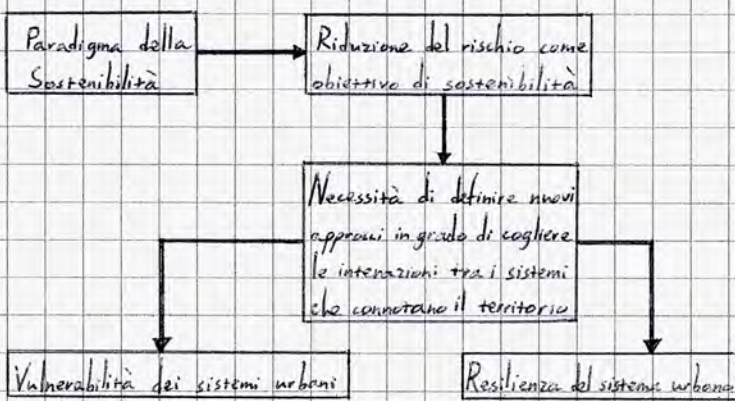 Paradigma della
Sostenibilità
Riduzione del rischio come
obiettivo di sostenibilità
Necessità di definire nuovi
approcci in grado di cogliere
le interazioni tra i sistemi
che connotano il territorio
Vulnerabilità dei sistemi urbani
Resilienza del sistema urbano